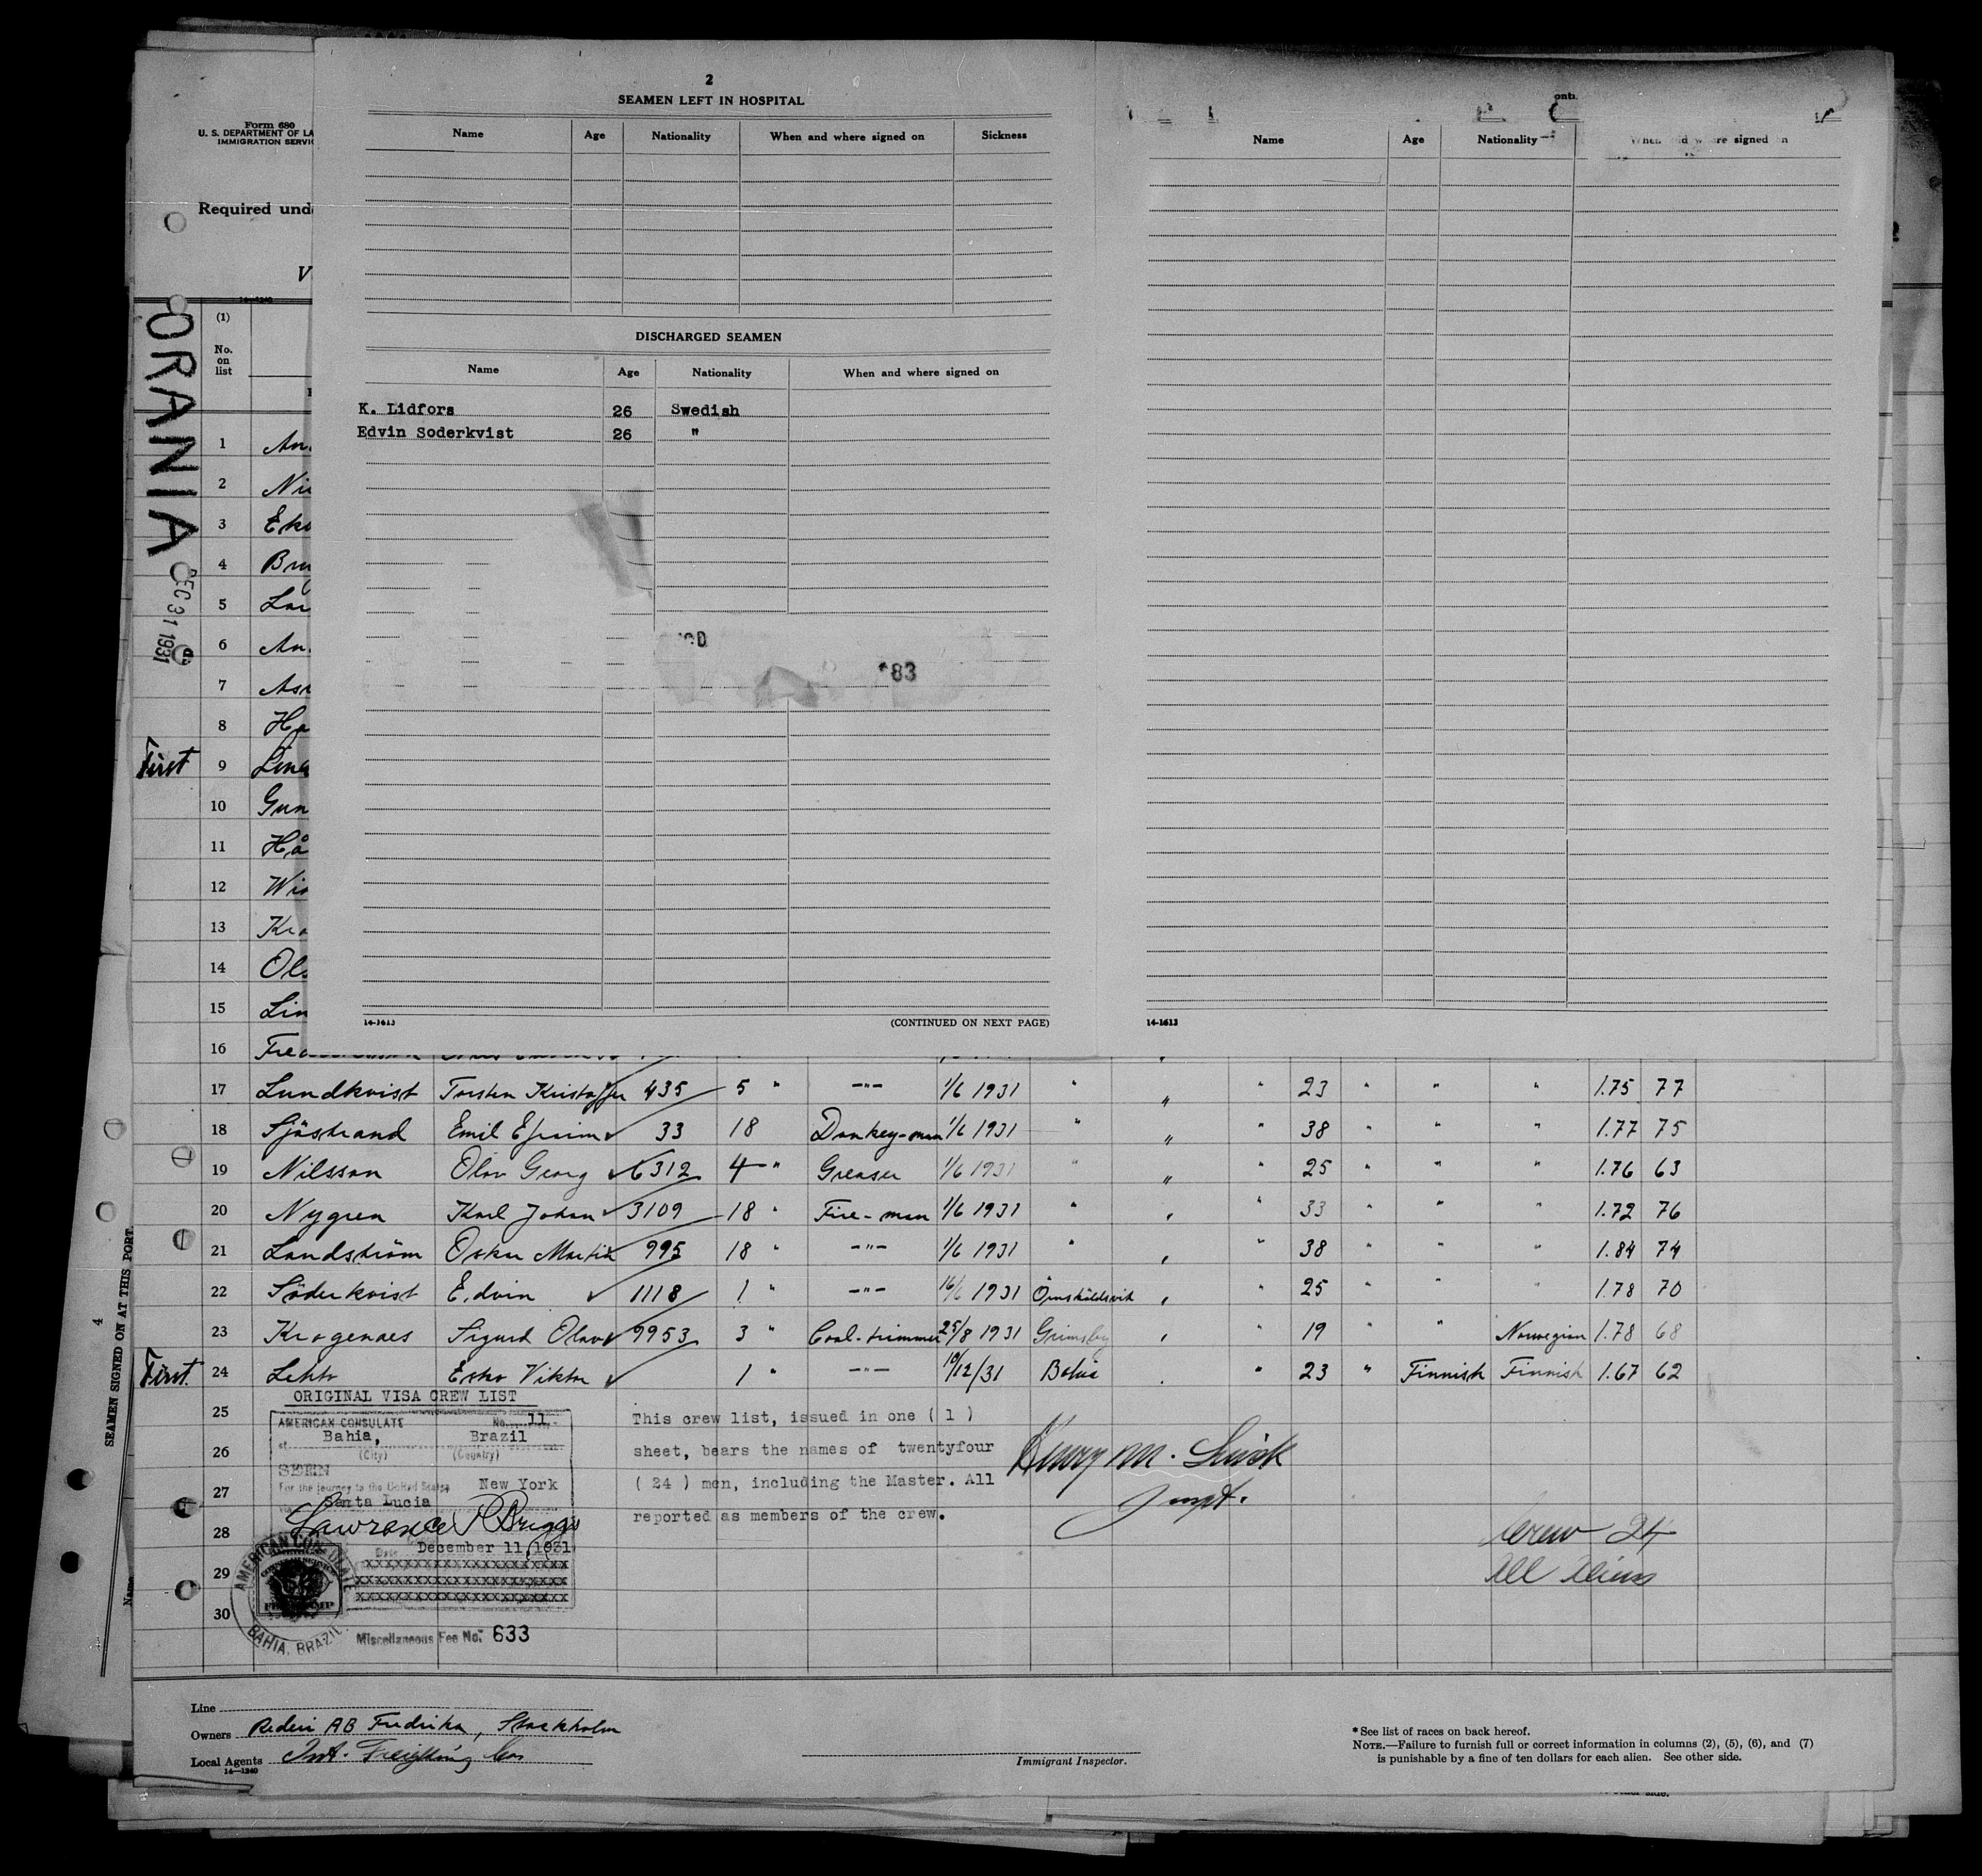 2
SEAMEN LEFT IN HOSPITAL
Name Age Nationality When and where signed on Sickness
DISCHARGED SEAMEN
Name Age Nationality When and where signed on
K. Lidfors 26 Swedish
Edvin Soderkvist 26 "
83
14-1613
(CONTINUED ON NEXT PAGE)
Name Age Nationality When and where signed on
14-1613
Form 680
U. S. DEPARTMENT OF LA
IMMIGRATION SERVIC
Required unde
V
14-1240
ORANIA
DEC 31 1931
(1)
No.
on
list
1 An
2 Ni
3 Eks
4 Bru
5 Lar
6 An
7 Asp
8 Ha
First 9 Lind
10 Gun
11 Hå
12 Wi
13 Kra
14 Ols
15 Lin
16
17 Lundkvist Torsten Kristoffer 435 5 " -"- 1/6 1931 " " " 23 " " " 1.75 77
18 Sjöstrand Emil Efraim 33 18 Donkey-man 1/6 1931 " " " 38 " " " 1.77 75
19 Nilsson Olov Georg 6312 4 " Greaser 1/6 1931 " " " 25 " " " 1.76 63
20 Nygren Karl Johan 3109 18 " Fire-man 1/6 1931 " " " 33 " " " 1.72 76
21 Landström Oskar Martin 995 18 " -"- 1/6 1931 " " " 38 " " " 1.84 74
22 Söderkvist Edvin 1118 1 " -"- 16/6 1931 Örnsköldsvik " " 25 " " " 1.78 70
23 Krogenaes Sigurd Olav 9953 3 " Coal-trimmer 25/8 1931 Grimsby " " 19 " " Norwegian 1.78 68
First 24 Lehto Esko Viktor 1 " -"- 10/12/31 Bahia " 23 " Finnish Finnish 1.67 62
ORIGINAL VISA CREW LIST
25
26
27
28
29
30
AMERICAN CONSULATE No. 11
at Bahia, Brazil
(City) (Country)
SEEN
For the journey to the United States New York
via Santa Lucia
Lawrence P Briggs
Date December 11, 1931
XXXXXXXXXXXXXXXXXXXXXXXX
XXXXXXXXXXXXXXXXXXXXXXXX
XXXXXXXXXXXXXXXXXXXXXXXX
AMERICAN CONSULATE
BAHIA, BRAZIL
Miscellaneous Fee No. 633
This crew list, issued in one ( 1 )
sheet, bears the names of twentyfour
( 24 ) men, including the Master. All
reported as members of the crew.
Henry M.
Inspt.
Crew 24
All Aliens
Line
Owners Rederi AB Fredrika, Stockholm
Local Agents Int. Freighting Cor
14-1240
Immigrant Inspector.
* See list of races on back hereof.
NOTE.—Failure to furnish full or correct information in columns (2), (5), (6), and (7)
is punishable by a fine of ten dollars for each alien. See other side.
4
SEAMEN SIGNED ON AT THIS PORT